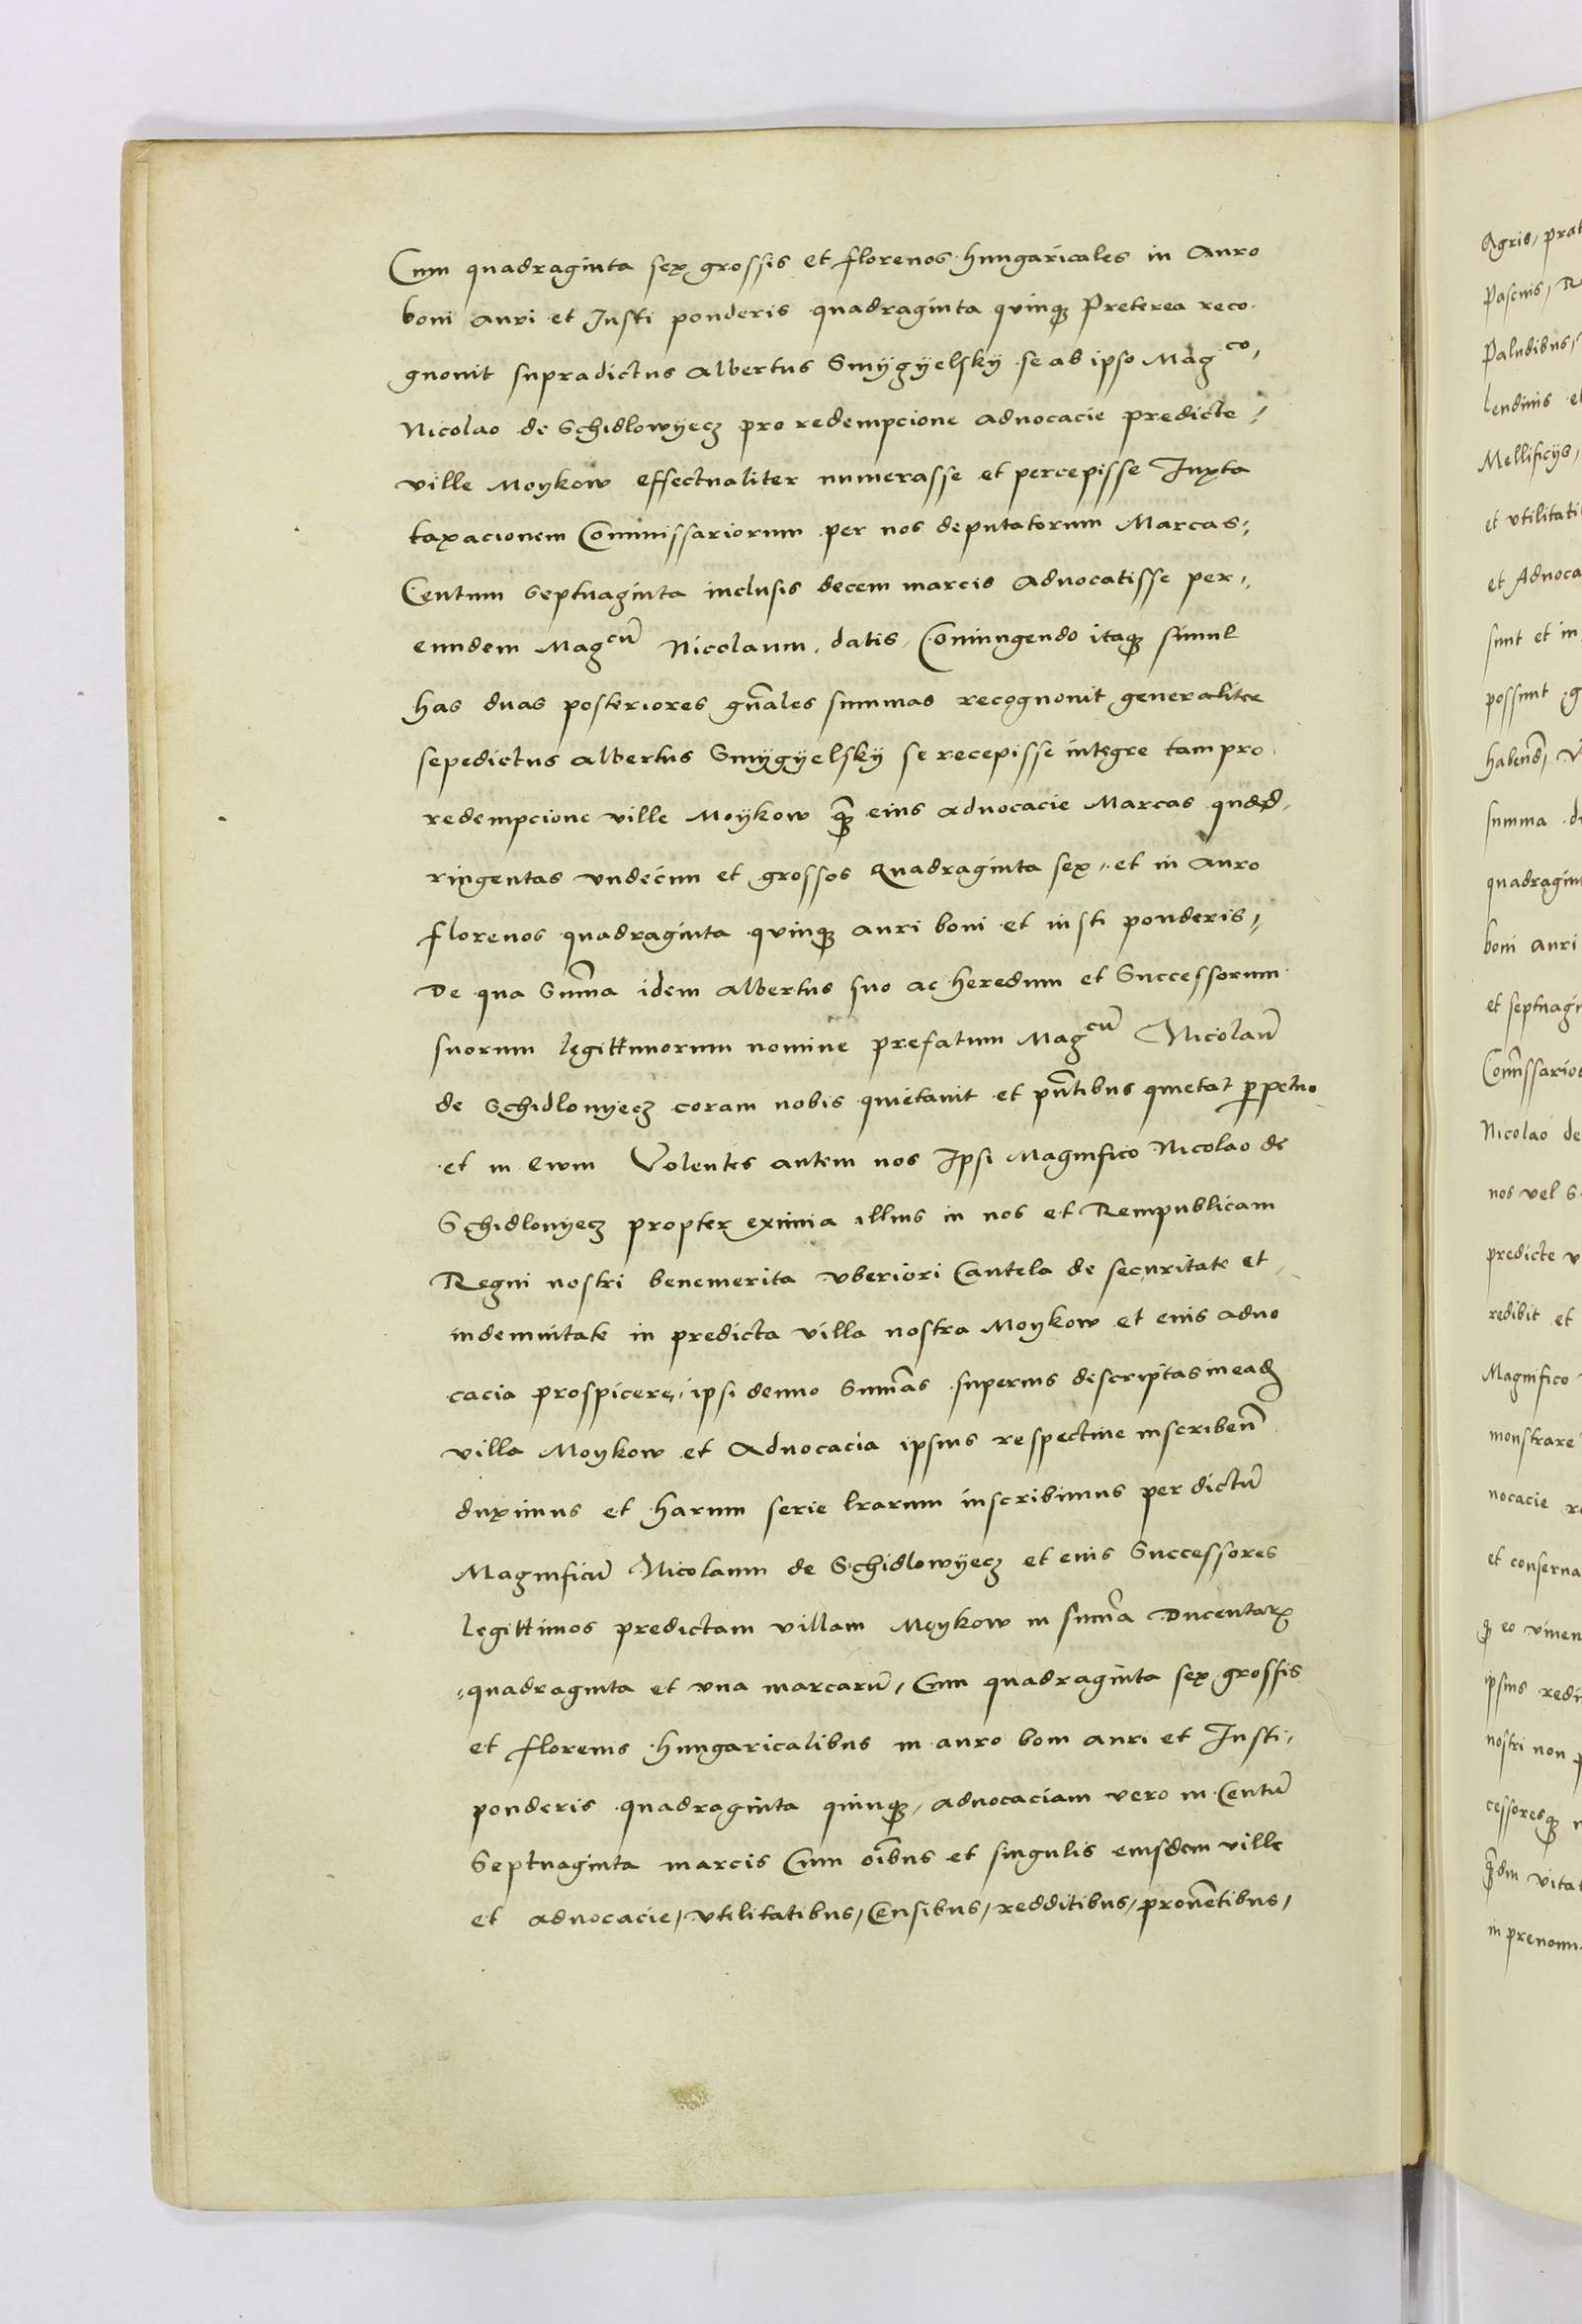 Cum quadraginta sex grossis et florenos hungaricales in Auro
boni auri et Justi ponderis quadraginta quinq₃ Preterea reco
gnouit supradictus Albertus Smÿgÿelskÿ se ab ipso Magco,
Nicolao de Schidlowÿecz pro redempcione aduocacie predicte,
ville Moykow effectualiter numerasse et percepisse Juxta
taxacionem Commissariorum per nos deputatorum Marcas,
Centum Septuaginta inclusis decem marcis Aduocatisse per,
eundem Magcū Nicolaum, datis, Coniungendo itaq₃ simul
has duas posteriores gn̄ales summas recognouit generaliter
sepedictus Albertus Smÿgÿelskÿ se recepisse integre tam pro
redempcione ville Moÿkow q̄₃ eius aduocacie Marcas quad
ringentas vndecim et grossos Quadraginta sex, et in Auro
florenos quadraginta quinq₃ auri boni et iusti ponderis,
De qua Sum̄a idem Albertus suo ac heredum et Successorum
suorum legittimorum nomine prefatum Magcū Nicolaū
de Schidlowyecz coram nobis quietauit et pn̄tibus quietat ꝑpetuo
et in Ewm Volentes autem nos Ipsi Magnifico Nicolao de
Schidlowyecz propter eximia illius in nos et Rempublicam
Regni nostri benemerita vberiori Cautela de securitate et,
indemnitate in predicta villa nostra Moykow et eius aduo
cacia prospicere, ipsi denuo Sum̄as superius descriptas in ead₃
villa Moykow et Aduocacia ipsius respectiue inscribēn
duximus et harum serie lrarum inscribimus per dictū
Magnificū Nicolaum de Schidlowÿecz et eius Successores
legittimos predictam villam Moykow in sum̄a Ducentarꝝ
quadraginta et vna marcarū, Cum quadraginta sex grossis
et florenis hungaricalibus in auro boni auri et Justi,
ponderis quadraginta quinq₃, aduocaciam vero in Centū
Septuaginta marcis Cum oībus et singulis eiusdem ville
et aduocacie, vtilitatibus, Censibus, redditibus, prouētibus,
Agris, prat
Pascuis, R
Paludibus,
lendinis et
Mellificÿs,
et vtilitati
et Aduoca
sunt et in
possunt g
habend̄, V
summa d
quadragin
boni auri
et septuagi
Com̄ssarios
Nicolao de
nos vel S
predicte v
redibit et
Magnifico
monstrare
uocacie re
et conserua
ꝙ eo viuen
ipsius redi
nostri non
cessoresq₃
q̄₃diu vita
in prenom